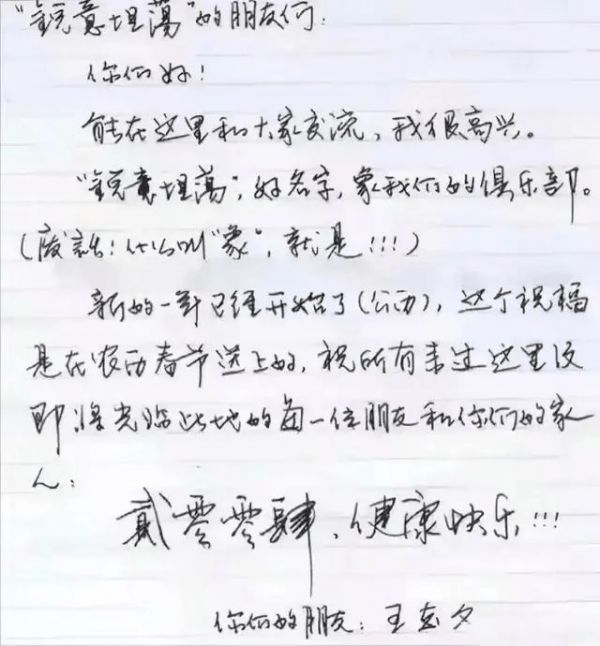 “锐意坦荡”的朋友们:
你们好!
能在这里和大家交流,我很高兴。
“锐意坦荡”,好名字,象我们的俱乐部。
(废话!什么叫“象”,就是!!!)
新的一年已经开始了(公历),这个祝福
是在农历春节送上的,祝所有来过这里及
即将光临此地的每一位朋友和你们的家
人:
贰零零肆,健康快乐!!!
你们的朋友:王志夕